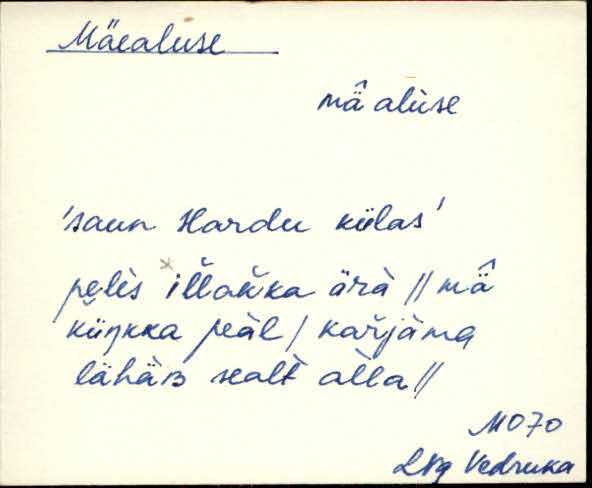 Mäealuse
mä̂ alùse
'saun Hardu külas'
pelès iľľakka ärà // mä̂
küŋkka peàl / kaŕjàma
lähäʙ sealt àlla //
M070
Vedruka